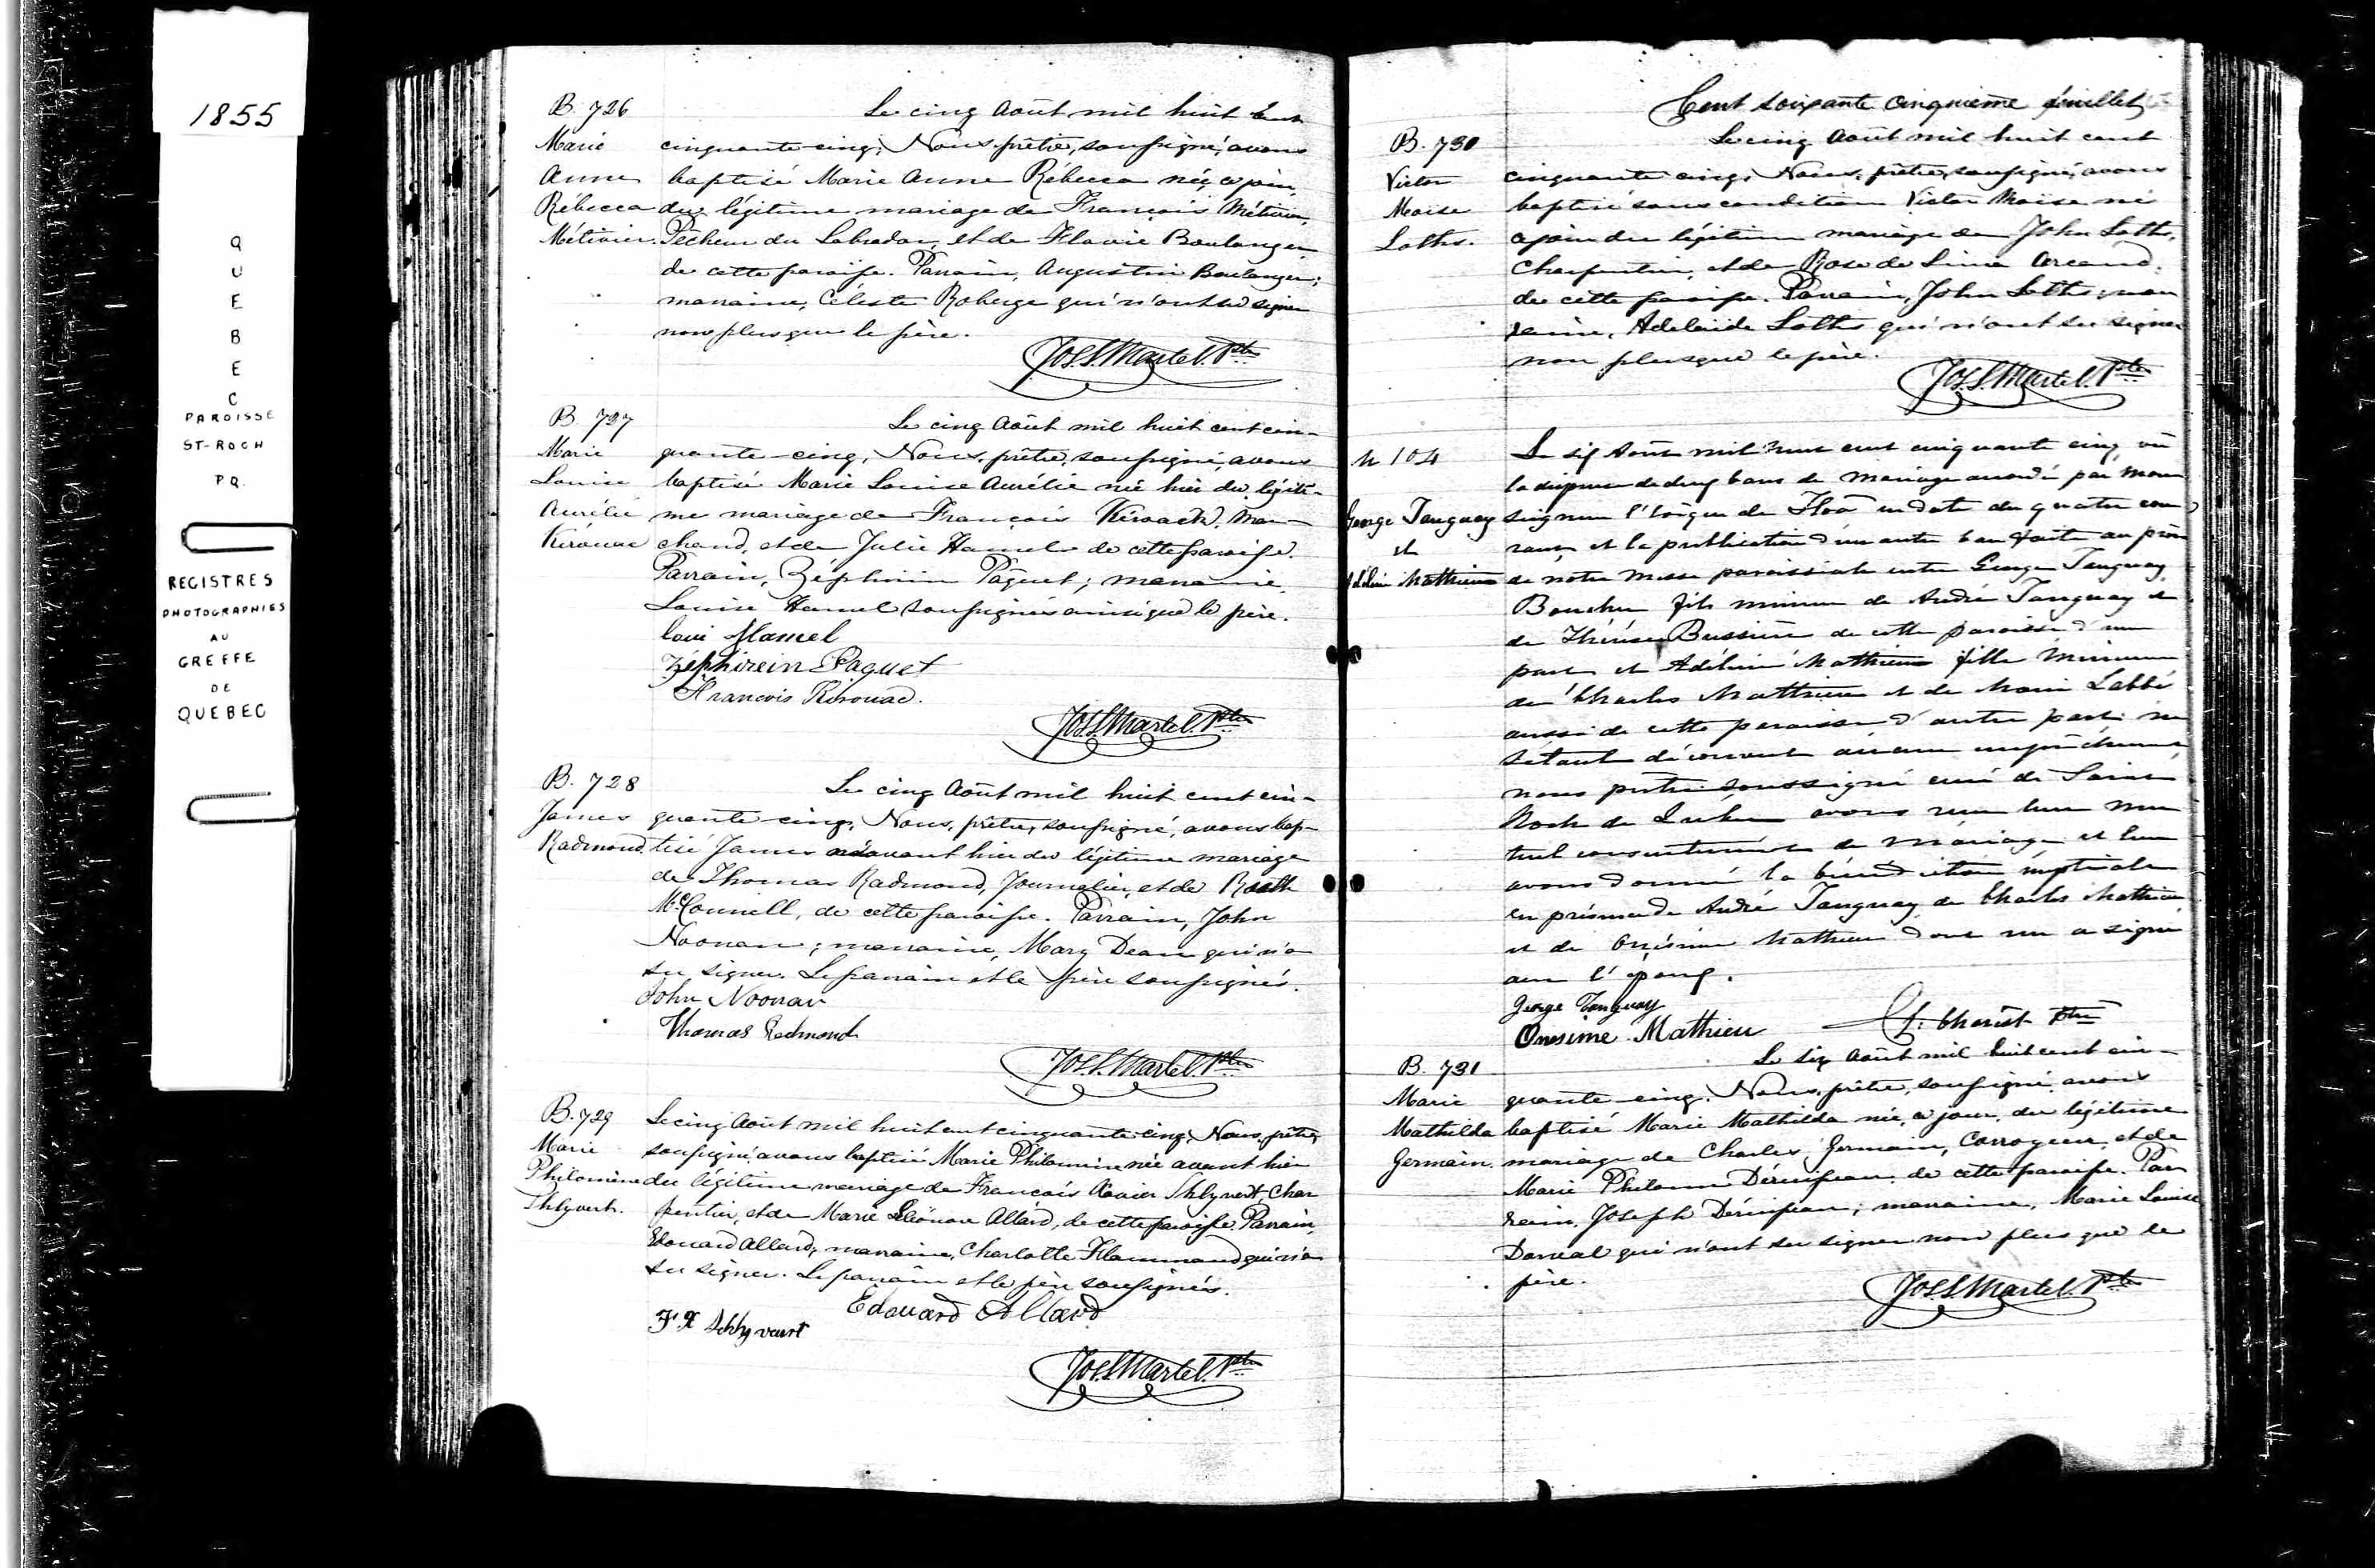 1855
Q
U
E
B
E
C
PAROISSE
ST-ROCH
PQ.
REGISTRES
PHOTOGRAPHIES
AU
GREFFE
DE
QUEBEC
B. 726
Marie
Anne
Rébecca
Métivier.
Le cinq Août mil huit cent
cinquante-cinq; Nous, prêtre, soussigné, avons
baptisé Marie Anne Rébecca née ce jour
du légitime mariage de François Métivier,
Pêcheur du Labrador, et de Flavie Boulanger
de cette paroisse. Parrain, Augustin Boulanger;
marraine, Céleste Roberge qui n'ont su signer
non plus que le père.
Jos. S. Martel. Ptre
B. 727
Marie
Louise
Aurélie
Kérouac
Le cinq Août mil huit cent cin-
quante-cinq, Nous, prêtre, soussigné, avons
baptisé Marie Louise Aurélie née hier du légiti-
me mariage de François Kéroack, Mar-
chand, et de Julie Hamel de cette paroisse.
Parrain, Zéphirin Pâquet; marraine,
Louise Hamel soussignés ainsi que le père.
Hamel
Zéphirein Paquet
François Kérouac.
Jos. S. Martel. Ptre
B. 728
James
Radmond.
Le cinq Août mil huit cent cin-
quante-cinq, Nous, prêtre, soussigné, avons bap-
tisé James né avant hier du légitime mariage
de Thomas Radmond, Journalier, et de
McConnell, de cette paroisse. Parrain, John
Noonan; marraine, Mary Dean qui n'a
su signer. Le parrain et le père soussignés.
John Noonan
Thomas Redmond
Jos. S. Martel. Ptre
B. 729
Marie
Philomène
Le cinq Août mil huit cent cinquante-cinq, Nous, prêtre,
soussigné avons baptisé Marie Philomène née avant hier
du légitime mariage de François Xavier Shlyvert, Char
pentier, et de Marie Léonore Allard, de cette paroisse. Parrain,
Edouard Allard; marraine, Charlotte Flammand qui n'a
su signer. Le parrain et le père soussignés.
Edouard Allard
F. X
Jos. S. Martel. Ptre
Cent soixante cinquième feuillet
B. 730
Victor
Moise
Loths.
Le cinq Août mil huit cent
cinquante cinq, Nous, prêtre, soussigné, avons
baptisé sous condition Victor Moïse né
ce jour du légitime mariage de John Loths,
Charpentier, et de Rose de Lima Arcand,
de cette paroisse. Parrain, John Loths; mar
raine, Adelaïde Loths qui n'ont su signer
non plus que le père.
Jos. S. Martel. Ptre
M 104
George Tanguay
et
Mathieu
Le six Août mil huit cent cinquante cinq, vu
la dispense de deux bans de mariage accordé par Mon
seigneur l'évêque de Tloa en date du quatre cou
rant et la publication d'un autre ban faite au prône
de notre Messe paroissiale entre George Tanguay
Boucher fils mineur de André Tanguay et
de Thérèse Bussière de cette paroisse d'une
part et Adéline Mathieu fille mineure
de Charles Mathieu et de Marie Labbé
aussi de cette paroisse d'autre part; ne
s'étant découvert aucun empêchement
nous prêtre soussigné curé de Saint
Roch de Québec avons reçu leur mu
tuel consentement de mariage et leur
avons donné la bénédiction nuptiale
en présence de André Tanguay de Charles Mathieu
et de Onésime Mathieu dont un a signé
avec l'époux.
George Tanguay
Onesime Mathieu
Charest Ptre
B. 731
Marie
Mathilda
Germain.
Le six Août mil huit cent cin-
quante-cinq, Nous, prêtre, soussigné avons
baptisé Marie Mathilda née, ce jour, du légitime
mariage de Charles Germain, Corroyeur, et de
Marie Philomène de cette paroisse. Par
rain, Joseph marraine, Marie Louise
Dorval qui n'ont su signer non plus que le
père.
Jos. S. Martel. Ptre